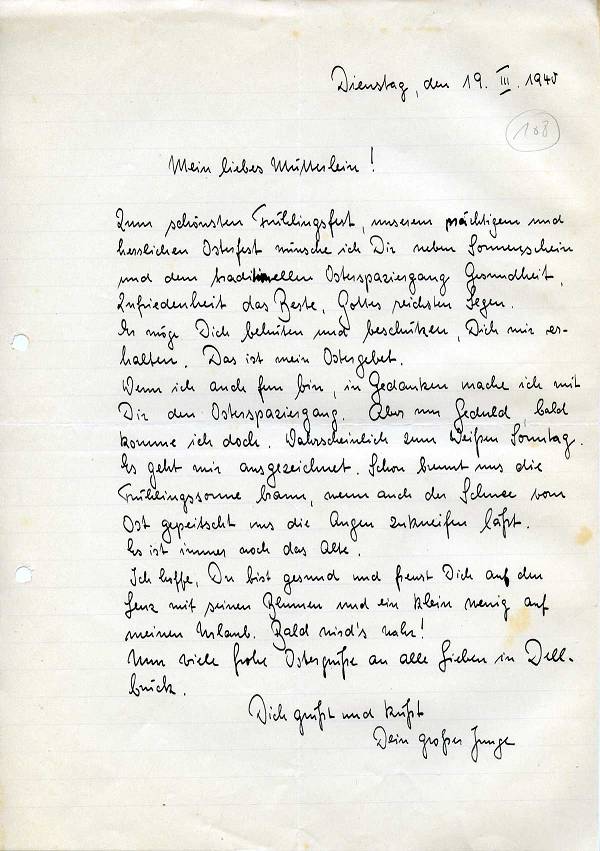 Dienstag, den 19. III. 1940
108
Mein liebes Mütterlein!
Zum schönsten Frühlingsfest, unserem prächtigen und
herrlichen Osterfest wünsche ich Dir neben Sonnenschein
und dem traditionellen Osterspaziergang Gesundheit,
Zufriedenheit das Beste, Gottes reichsten Segen.
Er möge Dich behüten und beschützen, Dich mir er-
halten. Das ist mein Ostergebet.
Wenn ich auch fern bin, in Gedanken mache ich mit
Dir den Osterspaziergang. Aber nur Geduld, bald
komme ich doch. Wahrscheinlich zum Weißen Sonntag.
Es geht mir ausgezeichnet. Schon brennt uns die
Frühlingssonne braun, wenn auch der Schnee vom
Ost gepeitscht uns die Augen zukneifen läßt.
Es ist immer noch das Alte.
Ich hoffe, Du bist gesund und freust Dich auf den
Lenz mit seinen Blumen und ein klein wenig auf
meinen Urlaub. Bald wird's wahr!
Nun viele frohe Ostergrüße an alle Lieben in Dell-
brück.
Dich grüßt und küßt
Dein großer Junge